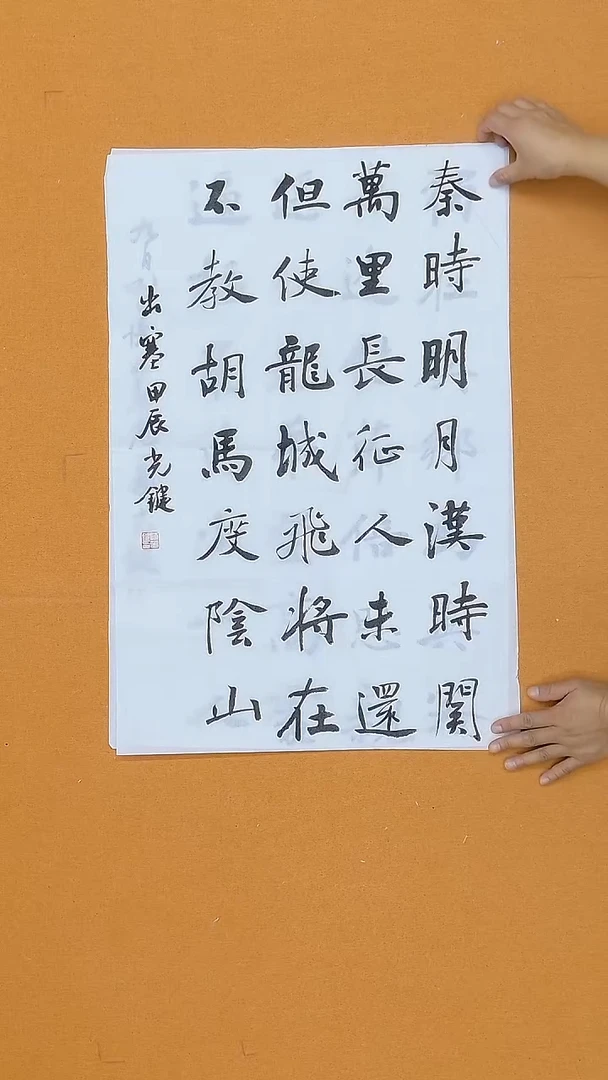 秦時明月漢時関
萬里長征人未還
但使龍城飛將在
不教胡馬度陰山
出塞甲辰光鍵